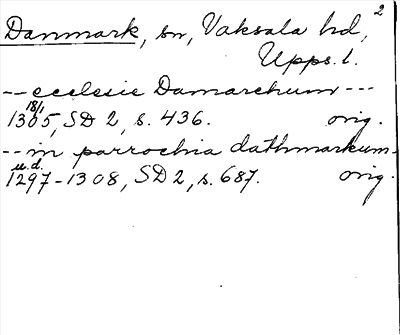 Danmark, sn, Vaksala hd, 2
Upps. l.
-- ecclesie Damarchum ---
18/1
1305, SD 2, s. 436. orig.
-- in parrochia dathmarkum -
u.d.
1297-1308, SD 2, s. 687. orig.